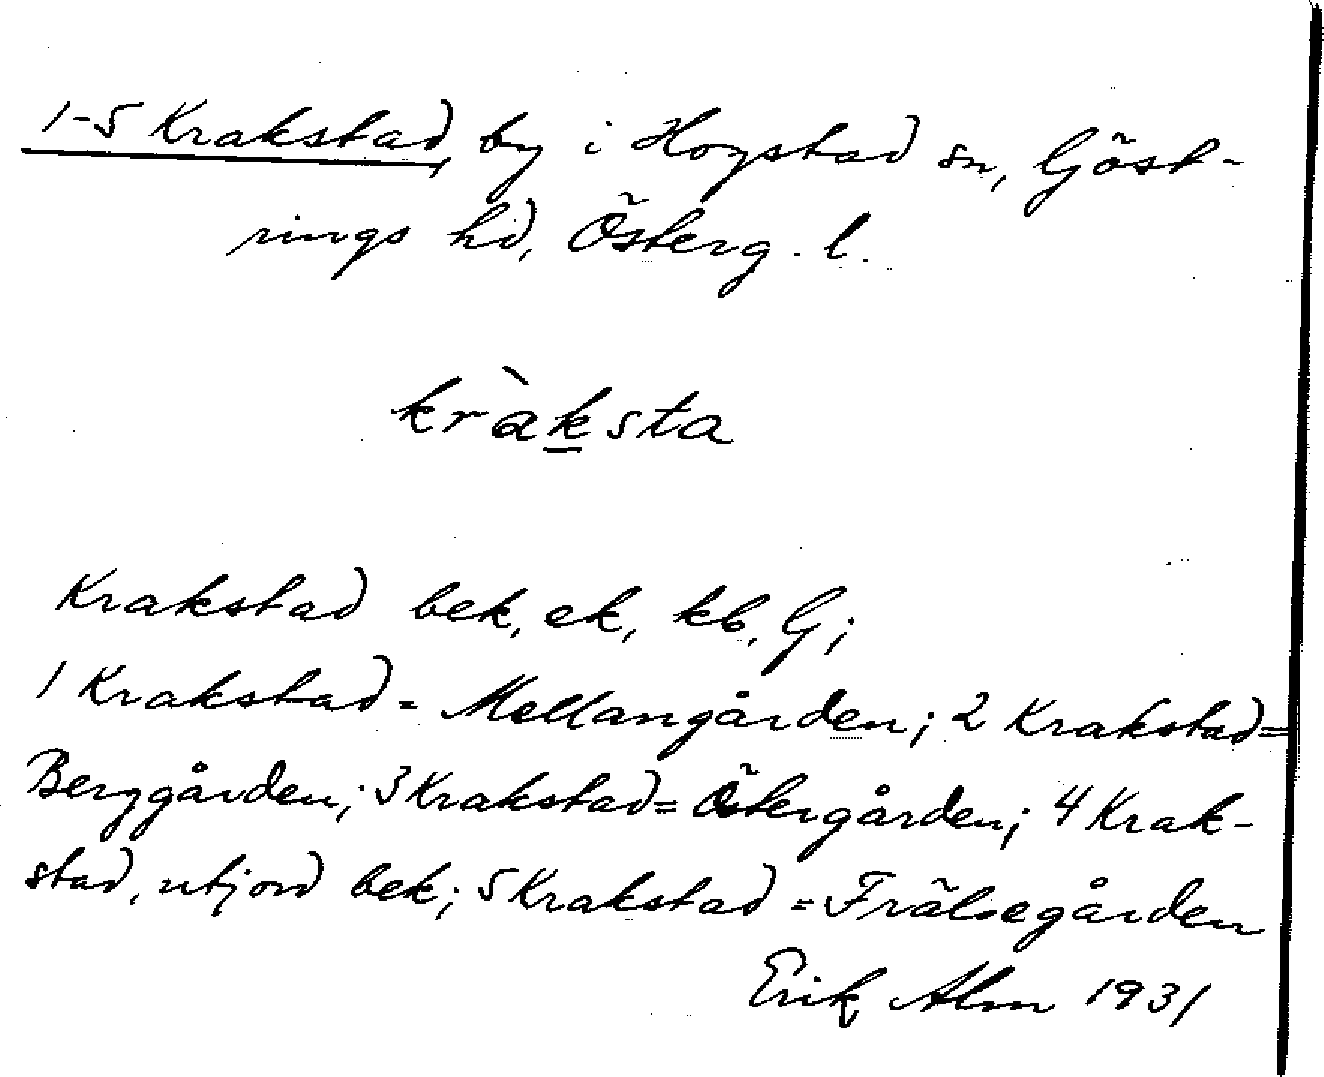 1-5 Krakstad, by i Hogstad sn, Göst-
rings hd, Österg. l.
kràksta
Krakstad bek, ek, kb, G;
1 Krakstad = Mellangården; 2 Krakstad =
Berggården; 3 Krakstad = Östergården; 4 Krak-
stad, utjord bek; 5 Krakstad = Frälsegården
Erik Alm 1931